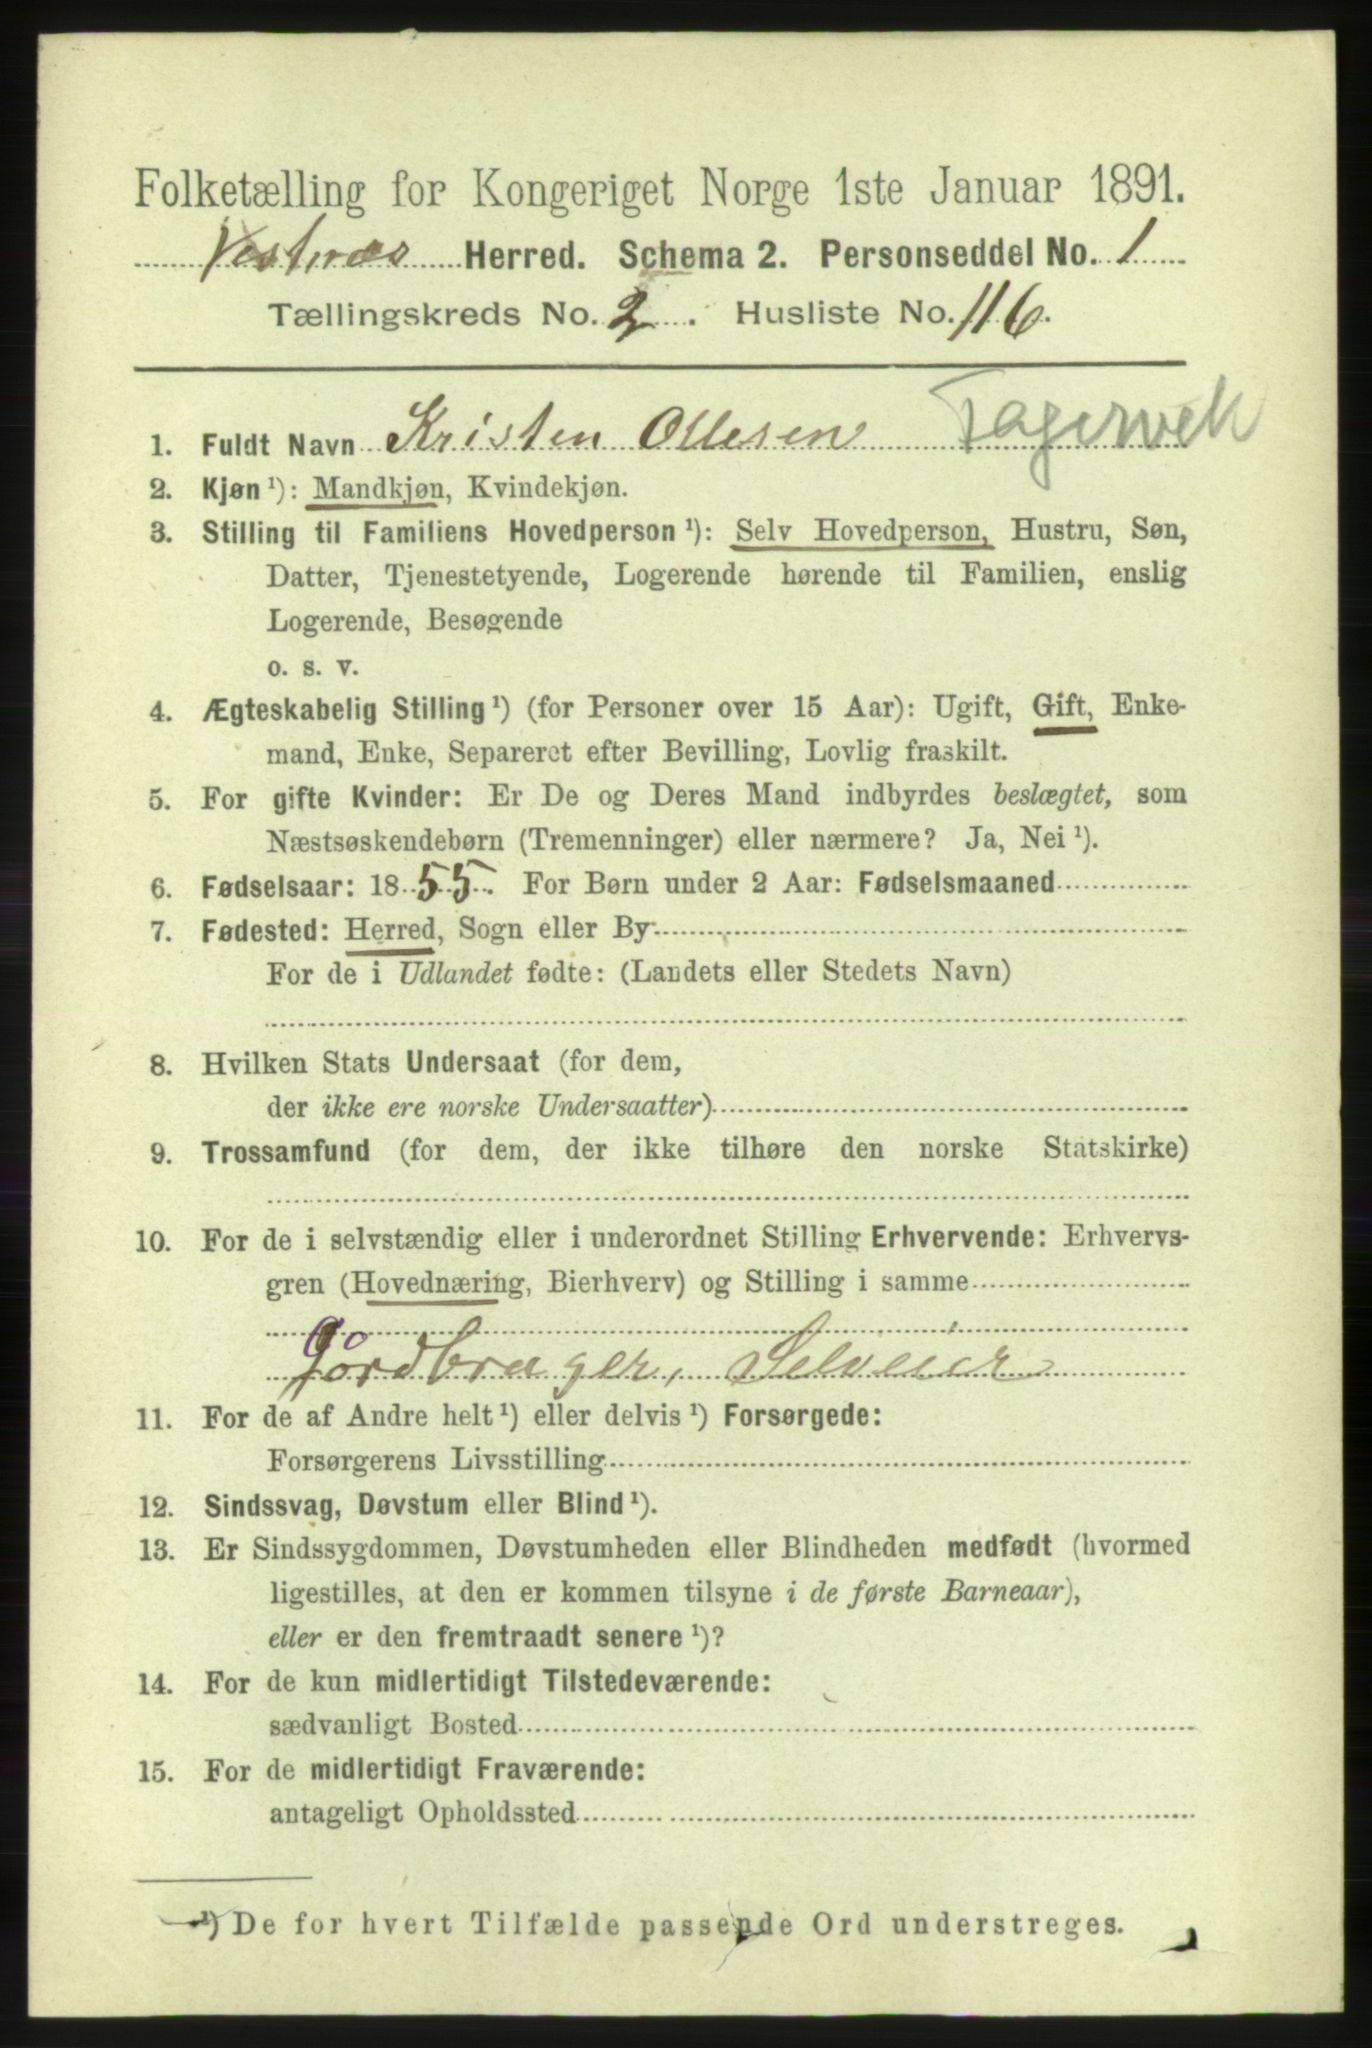 Folketælling for Kongeriget Norge 1ste Januar 1891.
Vestnæs Herred. Schema 2. Personseddel No. 1
Tællingskreds No. 2. Husliste No. 116.
1. Fuldt Navn Kristen Ollesen Fagervik
2. Kjøn ¹): Mandkjøn, Kvindekjøn.
3. Stilling til Familiens Hovedperson ¹): Selv Hovedperson, Hustru, Søn,
Datter, Tjenestetyende, Logerende hørende til Familien, enslig
Logerende, Besøgende
o. s. v.
4. Ægteskabelig Stilling ¹) (for Personer over 15 Aar): Ugift, Gift, Enke-
mand, Enke, Separeret efter Bevilling, Lovlig fraskilt.
5. For gifte Kvinder: Er De og Deres Mand indbyrdes beslægtet, som
Næstsøskendebørn (Tremenninger) eller nærmere? Ja, Nei ¹).
6. Fødselsaar: 1855. For Børn under 2 Aar: Fødselsmaaned
7. Fødested: Herred, Sogn eller By
For de i Udlandet fødte: (Landets eller Stedets Navn)
8. Hvilken Stats Undersaat (for dem,
der ikke ere norske Undersaatter)
9. Trossamfund (for dem, der ikke tilhøre den norske Statskirke)
10. For de i selvstændig eller i underordnet Stilling Erhvervende: Erhvervs-
gren (Hovednæring, Bierhverv) og Stilling i samme
Gårdbruger, Selveier
11. For de af Andre helt ¹) eller delvis ¹) Forsørgede:
Forsørgerens Livsstilling
12. Sindssvag, Døvstum eller Blind ¹).
13. Er Sindssygdommen, Døvstumheden eller Blindheden medfødt (hvormed
ligestilles, at den er kommen tilsyne i de første Barneaar),
eller er den fremtraadt senere ¹)?
14. For de kun midlertidigt Tilstedeværende:
sædvanligt Bosted
15. For de midlertidigt Fraværende:
antageligt Opholdssted
¹) De for hvert Tilfælde passende Ord understreges.